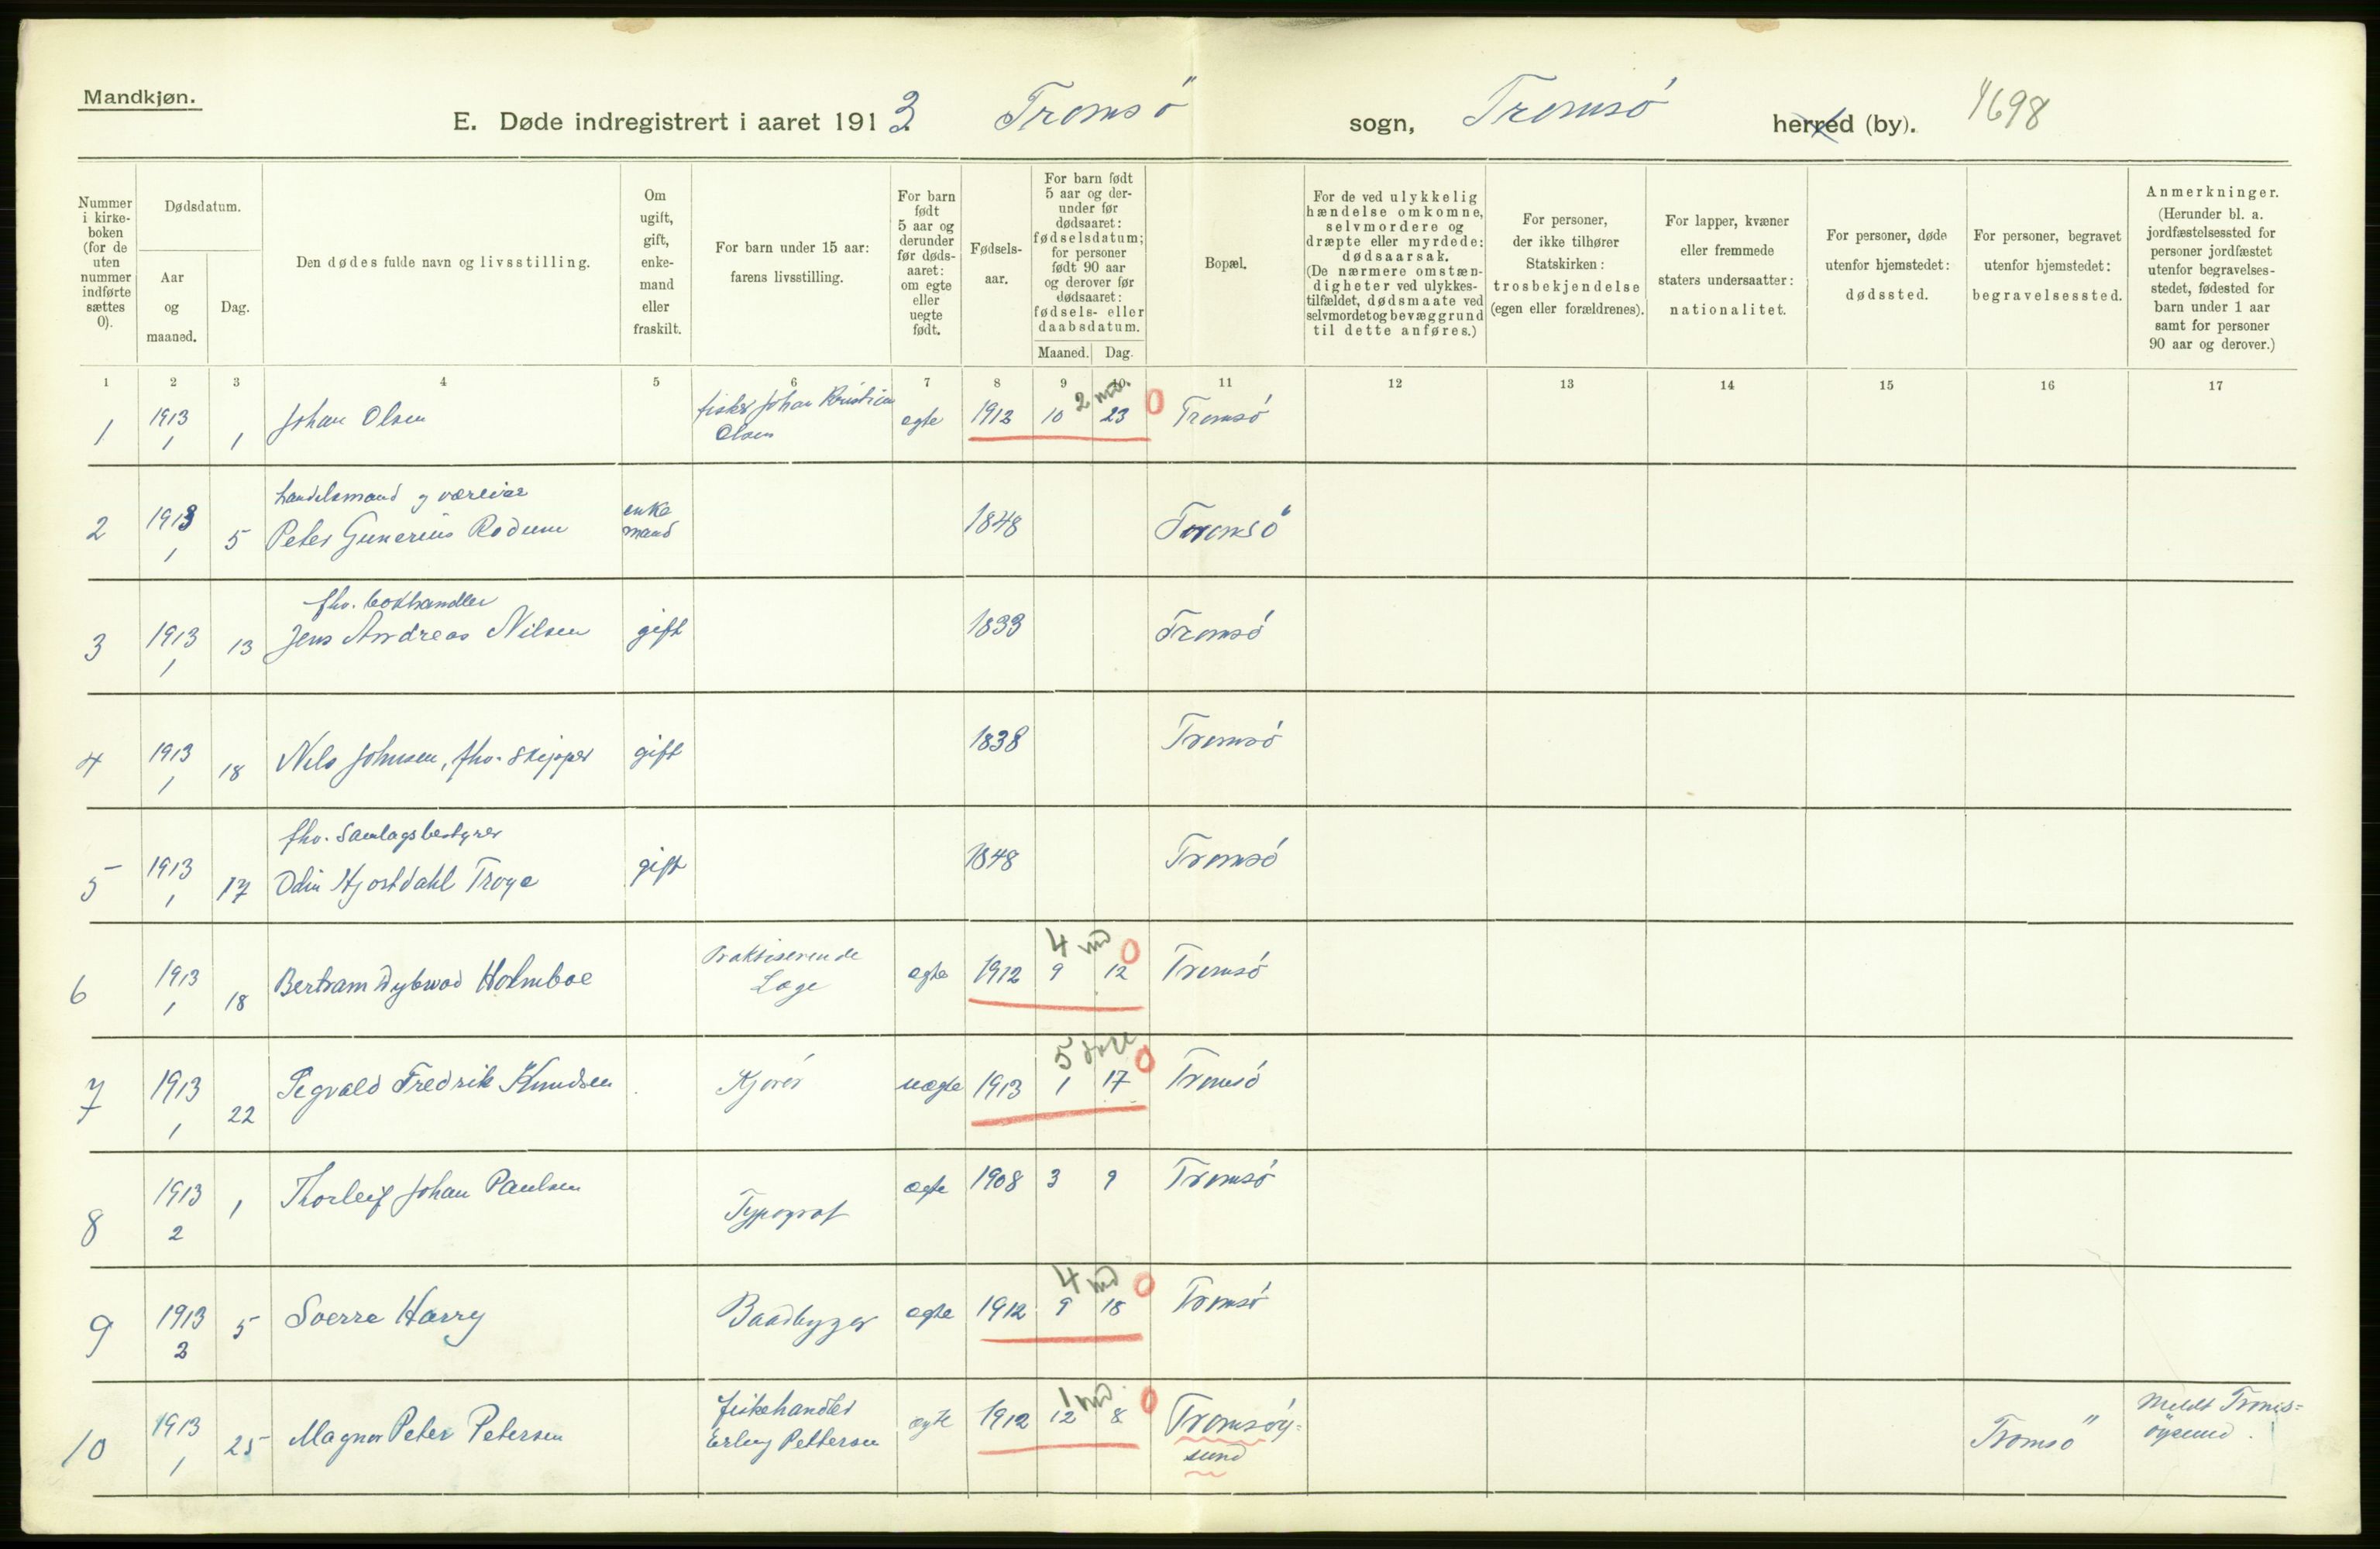 Mandkjøn.
E. Døde indregistrert i aaret 1913. Tromsö sogn, Tromsö herred (by). 1698
Nummer i kirke- boken (for de uten nummer indførte sættes 0).
Dødsdatum.
Aar og maaned.
Dag.
Den dødes fulde navn og livsstilling.
Om ugift, gift, enke- mand eller fraskilt.
For barn under 15 aar: farens livsstilling.
For barn født 5 aar og derunder før døds- aaret: om egte eller uegte født.
Fødsels- aar.
For barn født 5 aar og der- under før dødsaaret: fødselsdatum; for personer født 90 aar og derover før dødsaaret: fødsels- eller daabsdatum.
Maaned. Dag.
Bopæl.
For de ved ulykkelig hændelse omkomne, selvmordere og dræpte eller myrdede: dødsaarsak. (De nærmere omstæn- digheter ved ulykkes- tilfældet, dødsmaate ved selvmordet og bevæggrund til dette anføres.)
For personer, der ikke tilhører Statskirken: trosbekjendelse (egen eller forældrenes).
For lapper, kvæner eller fremmede staters undersaatter: nationalitet.
For personer, døde utenfor hjemstedet: dødssted.
For personer, begravet utenfor hjemstedet: begravelsessted.
Anmerkninger. (Herunder bl. a. jordfæstelsessted for personer jordfæstet utenfor begravelses- stedet, fødested for barn under 1 aar samt for personer 90 aar og derover.)
1 2 3 4 5 6 7 8 9 10 11 12 13 14 15 16 17
1 1913 1 1 Johan Olsen fisker Johan Kristian Olsen egte 1912 10 23 2 md. 0 Tromsö
2 1913 1 5 handelsmand og væreier Peter Gunerius Rodum enke mand 1848 Tromsö
3 1913 1 13 fhv. bokhandler Jens Andreas Nilsen gift 1833 Tromsö
4 1913 1 18 Nils Johnsen, fhv. skipper gift 1838 Tromsö
5 1913 1 17 fhv. Samlagsbestyrer Odin Hjortdahl Troye gift 1848 Tromsö
6 1913 1 18 Bertram Dybwad Holmboe Praktiserende Læge egte 1912 9 12 4 md 0 Tromsö
7 1913 1 22 Sigvald Fredrik Knudsen Kjører uægte 1913 1 17 5 0 Tromsö
8 1913 2 1 Thorleif Johan Paulsen Typograf ægte 1908 3 9 Tromsö
9 1913 2 5 Sverre Harry Baadbygger egte 1912 9 18 4 md 0 Tromsö
10 1913 1 25 Magnor Peter Petersen fiskehandler Erling Pettersen ægte 1912 12 8 1 md. 0 Tromsöy- sund Tromsö Meldt Troms= öysund.